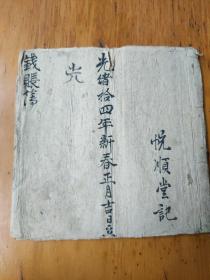 悦順堂記
光緒拾四年新春正月吉日立
光
錢賬簿